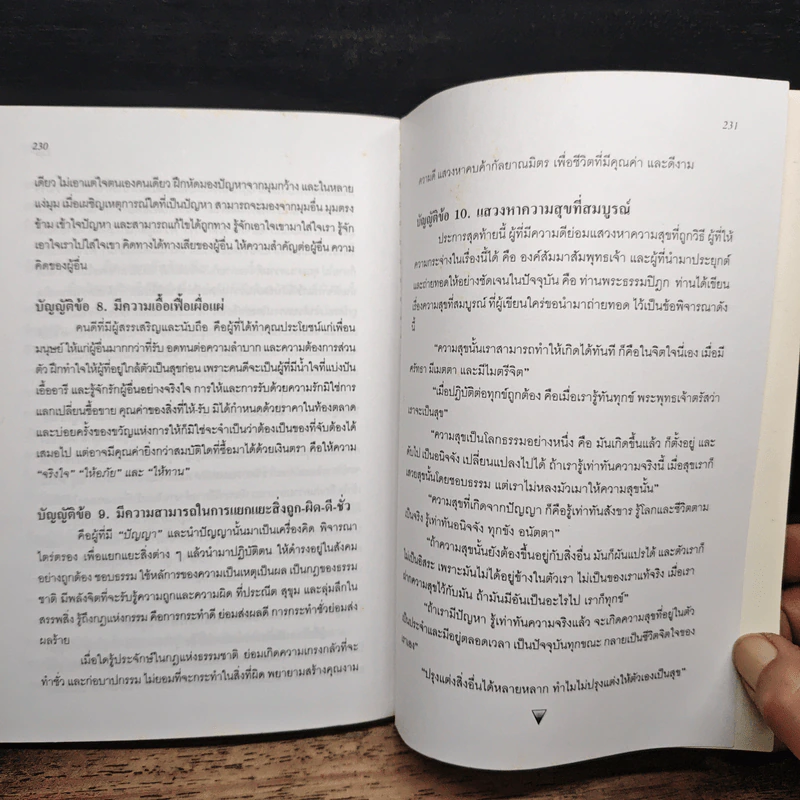 230
เดียว ไม่เอาแต่ใจตนเองคนเดียว ฝึกหัดมองปัญหาจากมุมกว้าง และในหลาย
แง่มุม เมื่อเผชิญเหตุการณ์ใดที่เป็นปัญหา สามารถจะมองจากมุมอื่น มุมตรง
ข้าม เข้าใจปัญหา และสามารถแก้ไขได้ถูกทาง รู้จักเอาใจเขามาใส่ใจเรา รู้จัก
เอาใจเราไปใส่ใจเขา คิดทางได้ทางเสียของผู้อื่น ให้ความสำคัญต่อผู้อื่น ความ
คิดของผู้อื่น
บัญญัติข้อ 8. มีความเอื้อเฟื้อเผื่อแผ่
คนดีที่มีผู้สรรเสริญและนับถือ คือผู้ที่ได้ทำคุณประโยชน์แก่เพื่อน
มนุษย์ ให้แก่ผู้อื่นมากกว่าที่รับ อดทนต่อความลำบาก และความต้องการส่วน
ตัว ฝึกทำใจให้ผู้ที่อยู่ใกล้ตัวเป็นสุขก่อน เพราะคนดีจะเป็นผู้ที่มีน้ำใจที่แบ่งปัน
เอื้ออารี และรู้จักรักผู้อื่นอย่างจริงใจ การให้และการรับด้วยความรักมิใช่การ
แลกเปลี่ยนซื้อขาย คุณค่าของสิ่งที่ให้-รับ มิได้กำหนดด้วยราคาในท้องตลาด
และบ่อยครั้งของขวัญแห่งการให้ก็มิใช่จะจำเป็นว่าต้องเป็นของที่จับต้องได้
เสมอไป แต่อาจมีคุณค่ายิ่งกว่าสมบัติใดที่ซื้อมาได้ด้วยเงินตรา คือให้ความ
"จริงใจ" "ให้อภัย" และ "ให้ทาน"
บัญญัติข้อ 9. มีความสามารถในการแยกแยะสิ่งถูก-ผิด-ดี-ชั่ว
คือผู้ที่มี "ปัญญา" และนำปัญญานั้นมาเป็นเครื่องคิด พิจารณา
ไตร่ตรอง เพื่อแยกแยะสิ่งต่าง ๆ แล้วนำมาปฏิบัติตน ให้ดำรงอยู่ในสังคม
อย่างถูกต้อง ชอบธรรม ใช้หลักการของความเป็นเหตุเป็นผล เป็นกฎของธรรม
ชาติ มีพลังจิตที่จะรับรู้ความถูกและความผิด ที่ประณีต สุขุม และลุ่มลึกใน
สรรพสิ่ง รู้ถึงกฎแห่งกรรม คือการกระทำดี ย่อมส่งผลดี การกระทำชั่วย่อมส่ง
ผลร้าย
เมื่อใดรู้ประจักษ์ในกฎแห่งธรรมชาติ ย่อมเกิดความเกรงกลัวที่จะ
ทำชั่ว และก่อบาปกรรม ไม่ยอมที่จะกระทำในสิ่งที่ผิด พยายามสร้างคุณงาม
231
ความดี แสวงหาคบค้ากัลยาณมิตร เพื่อชีวิตที่มีคุณค่า และดีงาม
บัญญัติข้อ 10. แสวงหาความสุขที่สมบูรณ์
ประการสุดท้ายนี้ ผู้ที่มีความดีย่อมแสวงหาความสุขที่ถูกวิธี ผู้ที่ให้
ความกระจ่างในเรื่องนี้ได้ คือ องค์สัมมาสัมพุทธเจ้า และผู้ที่นำมาประยุกต์
และถ่ายทอดให้อย่างชัดเจนในปัจจุบัน คือ ท่านพระธรรมปิฎก ท่านได้เขียน
เรื่องความสุขที่สมบูรณ์ ที่ผู้เขียนใคร่ขอนำมาถ่ายทอด ไว้เป็นข้อพิจารณาดัง
นี้
"ความสุขนั้นเราสามารถทำให้เกิดได้ทันที ก็คือในจิตใจนี่เอง เมื่อมี
ศรัทธา มีเมตตา และมีไมตรีจิต"
"เมื่อปฏิบัติต่อทุกข์ถูกต้อง คือเมื่อเรารู้ทันทุกข์ พระพุทธเจ้าตรัสว่า
เราจะเป็นสุข"
"ความสุขเป็นโลกธรรมอย่างหนึ่ง คือ มันเกิดขึ้นแล้ว ก็ตั้งอยู่ และ
ดับไป เป็นอนิจจัง เปลี่ยนแปลงไปได้ ถ้าเรารู้เท่าทันความจริงนี้ เมื่อสุขเราก็
เสวยสุขนั้นโดยชอบธรรม แต่เราไม่หลงมัวเมาให้ความสุขนั้น"
"ความสุขที่เกิดจากปัญญา ก็คือรู้เท่าทันสังขาร รู้โลกและชีวิตตาม
เป็นจริง รู้เท่าทันอนิจจัง ทุกขัง อนัตตา"
"ถ้าความสุขนั้นยังต้องขึ้นอยู่กับสิ่งอื่น มันก็ผันแปรได้ และตัวเราก็
ไม่เป็นอิสระ เพราะมันไม่ได้อยู่ข้างในตัวเรา ไม่เป็นของเราแท้จริง เมื่อเรา
ฝากความสุขไว้กับมัน ถ้ามันมีอันเป็นอะไรไป เราก็ทุกข์"
"ถ้าเรามีปัญหา รู้เท่าทันความจริงแล้ว จะเกิดความสุขที่อยู่ในตัว
เป็นประจำและมีอยู่ตลอดเวลา เป็นปัจจุบันทุกขณะ กลายเป็นชีวิตจิตใจของ
เราเอง"
"ปรุงแต่งสิ่งอื่นได้หลายหลาก ทำไมไม่ปรุงแต่งให้ตัวเองเป็นสุข"